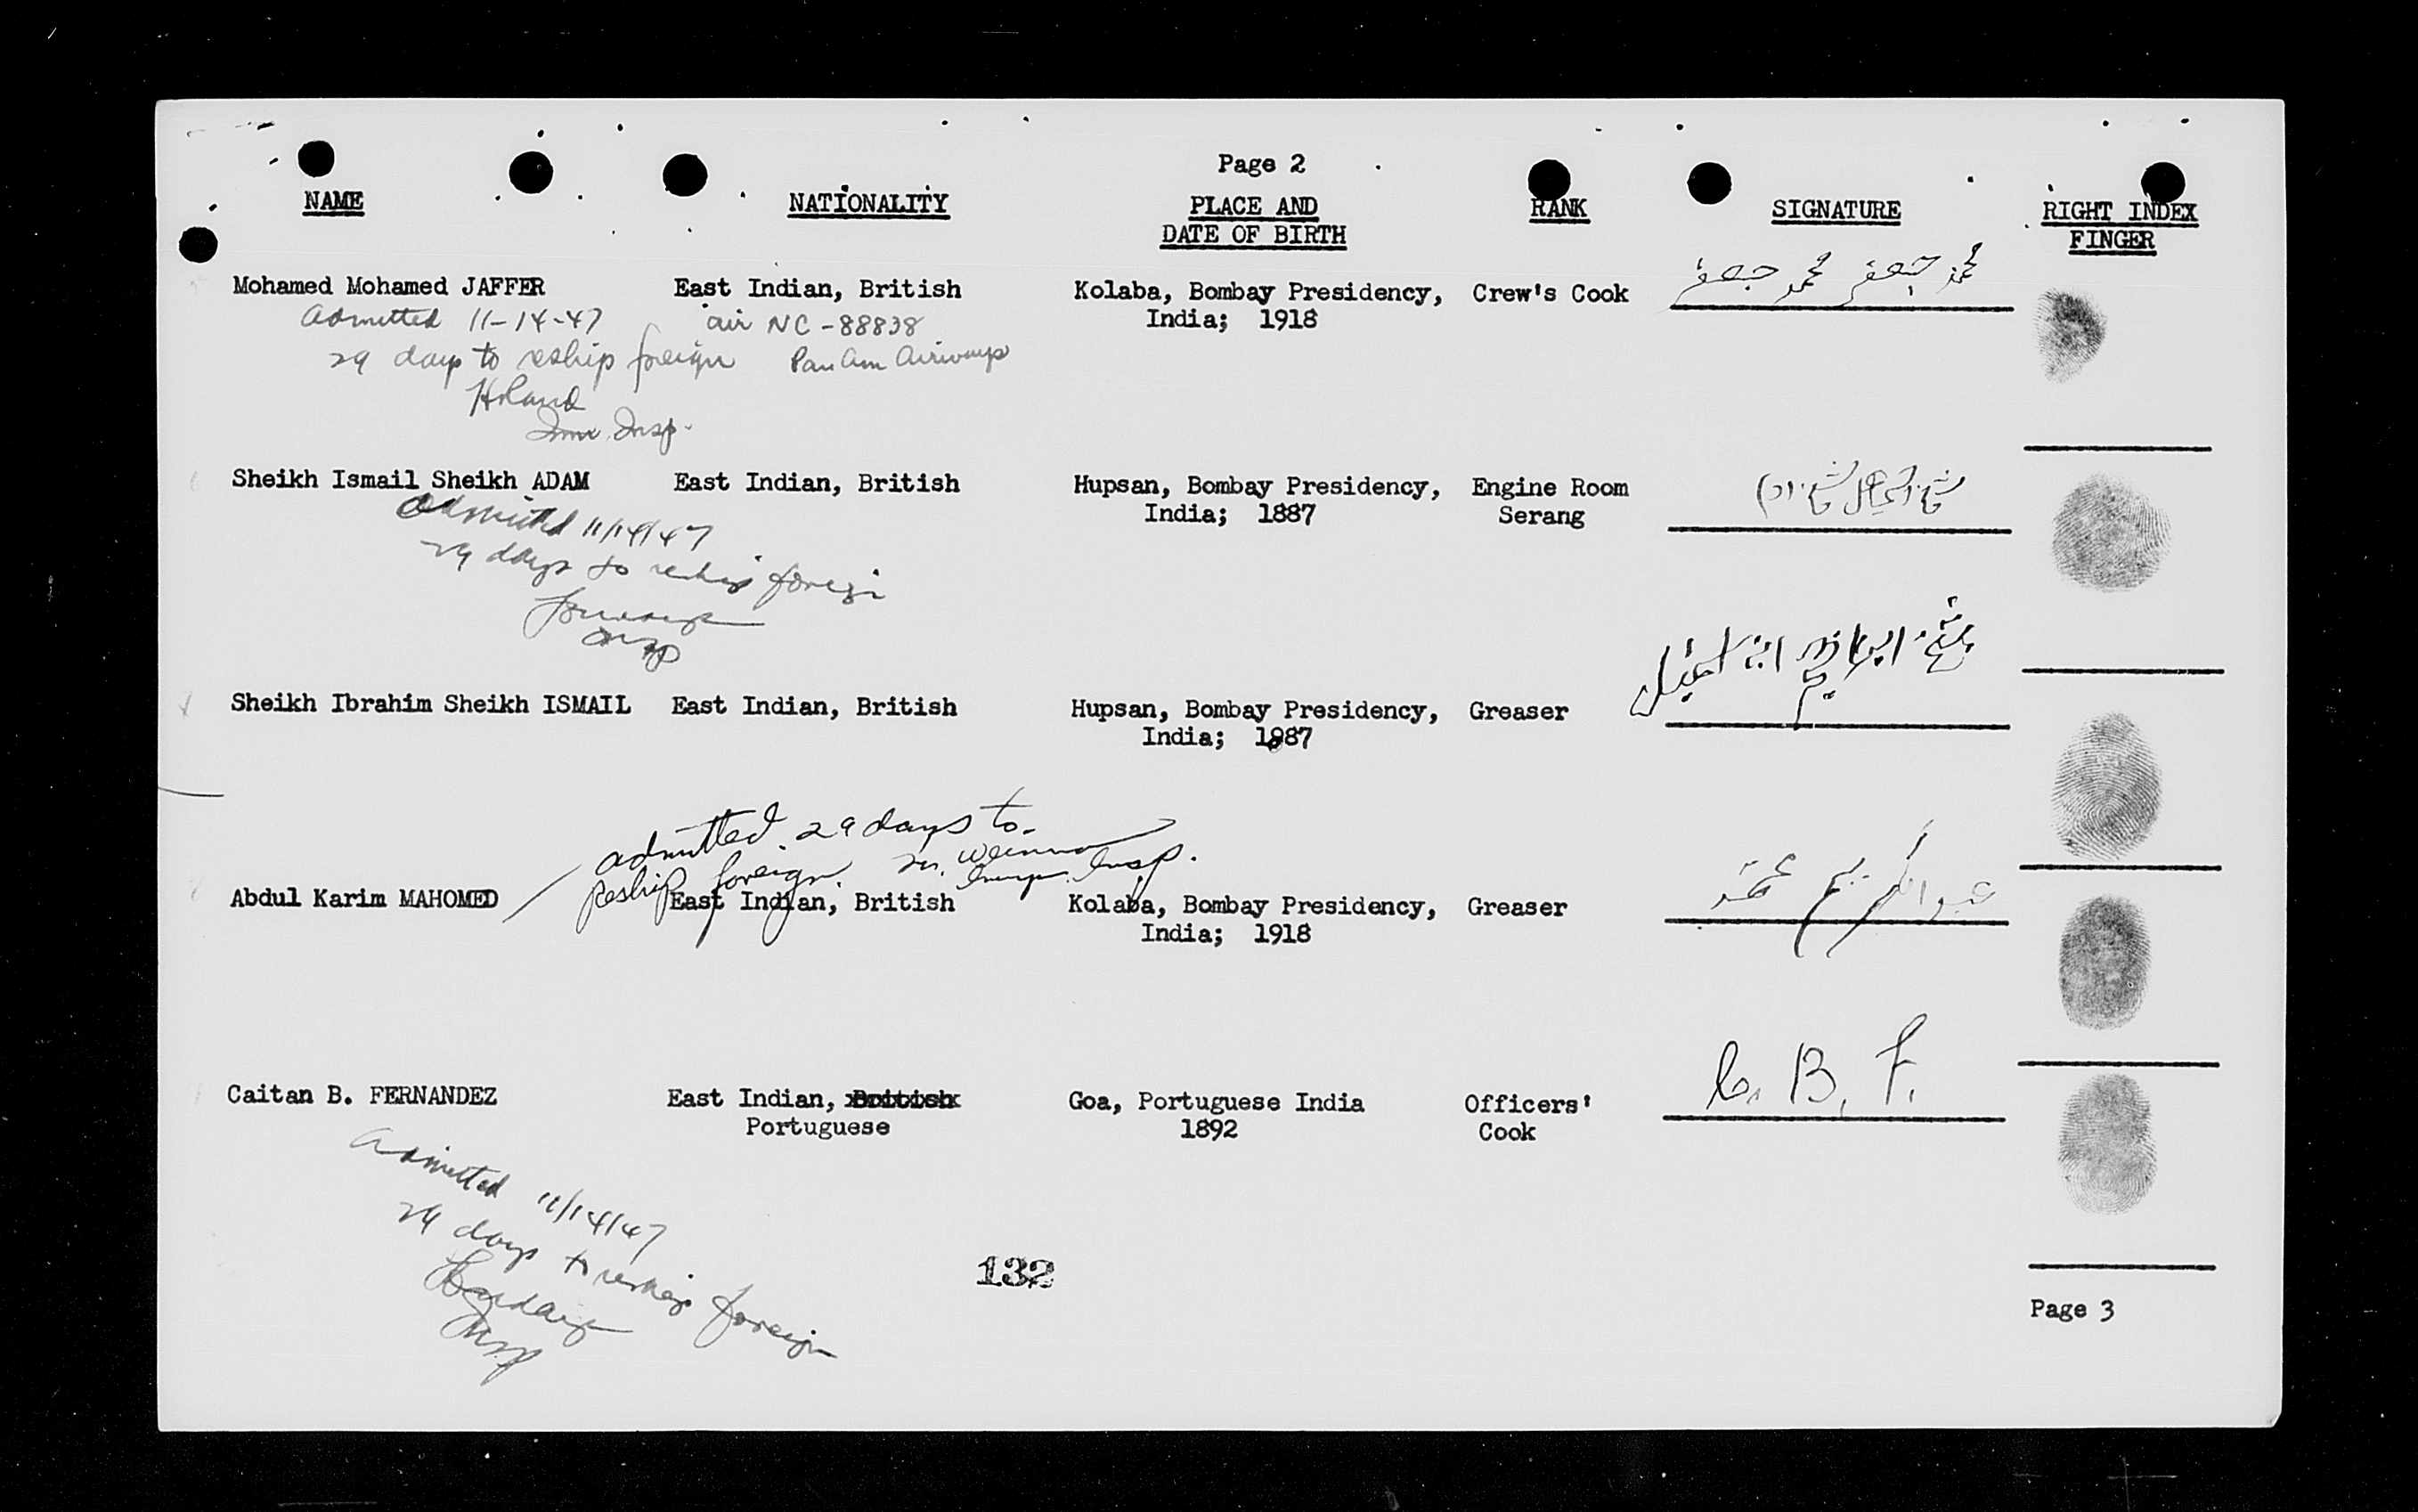 Page 2
NAME NATIONALITY PLACE AND DATE OF BIRTH RANK SIGNATURE RIGHT INDEX FINGER
Mohamed Mohamed JAFFER East Indian, British Kolaba, Bombay Presidency, Crew's Cook محمد جعفر محمد جعفر
India; 1918
Admitted 11-14-47 air NC-88838
29 days to reship foreign Pan Am Airways
Imm. Insp.
Sheikh Ismail Sheikh ADAM East Indian, British Hupsan, Bombay Presidency, Engine Room
India; 1887 Serang
Admitted 11/14/47
29 days to reship foreign
Insp
Sheikh Ibrahim Sheikh ISMAIL East Indian, British Hupsan, Bombay Presidency, Greaser
India; 1887
admitted 29 days to
reship foreign. Insp.
Abdul Karim MAHOMED East Indian, British Kolaba, Bombay Presidency, Greaser عبدالكريم محمد
India; 1918
Caitan B. FERNANDEZ East Indian, British Goa, Portuguese India Officers' C. B. F.
Portuguese 1892 Cook
Admitted 11/14/47
29 days to reship foreign
Insp
132
Page 3